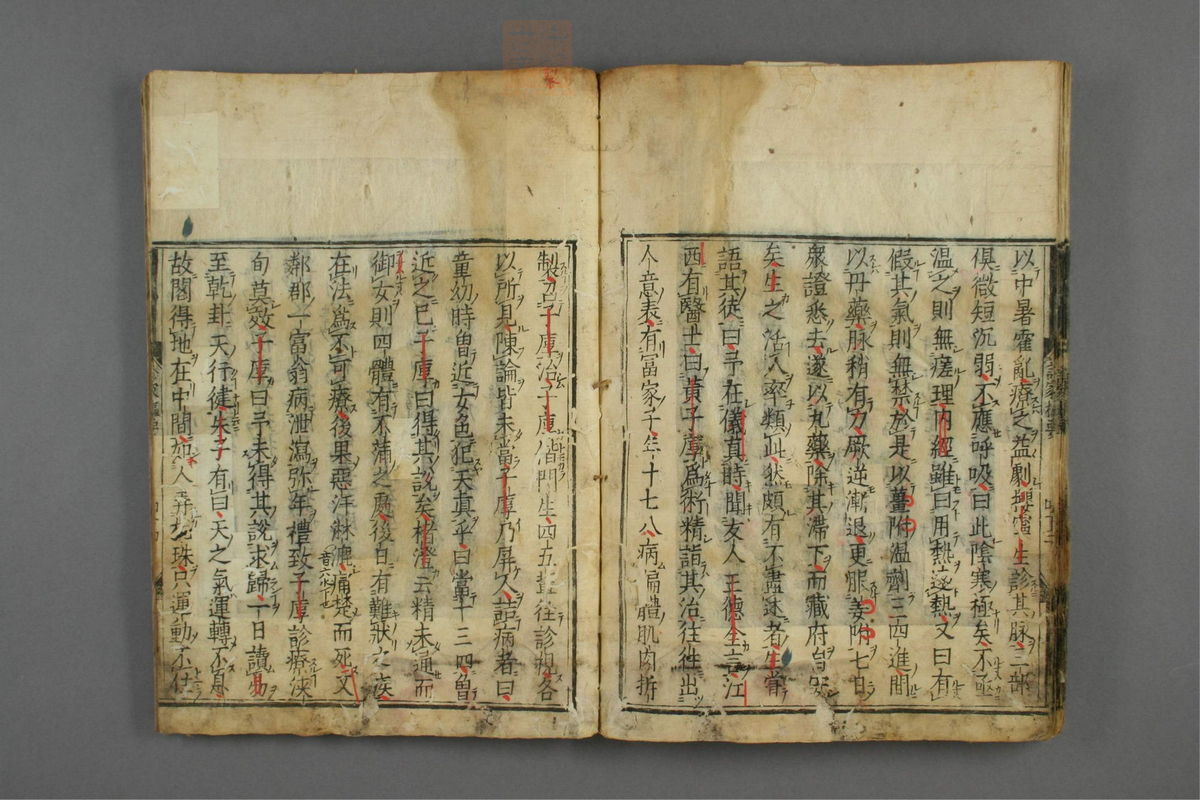 以中暑霍亂療之益劇攖寧生診其脉三部
俱微短沉弱不應呼吸曰此陰寒極矣不亟
溫之則無瘥理內經雖曰用熱遠熱又曰有
假其氣則無禁於是以薑附溫劑三四進間
以丹藥脉稍有力厥逆漸退更服姜附七日
衆證悉去遂以丸藥除其滯下而藏府皆安
矣生之活人率類此然頗有不盡述者生嘗
語其徒曰予在儀真時聞友人王德全言江
西有醫士曰黄子厚爲術精詣其治往往出
人意表有冨家子年十七八病扁體肌肉折
製召子厚治子厚偕門生四五輩往診視各
以所見陳論皆未當子厚乃屏人詰病者曰
童幼時曽近女色犯天真乎曰當十三四曽
近之已子厚曰得其說矣楮澄云精未通而
御女則四體有不滿之處後日有難狀之疾
在法爲不可療後果惡汗淋漓痛楚而死又
鄰郡一富翁病泄瀉弥年禮致子厚診療浹
旬莫效子厚曰予未得其說求歸一日讀易
至乾卦天行健朱子有曰天之氣運轉不息
故閣得地在中間如人弄椀珠只運動不住